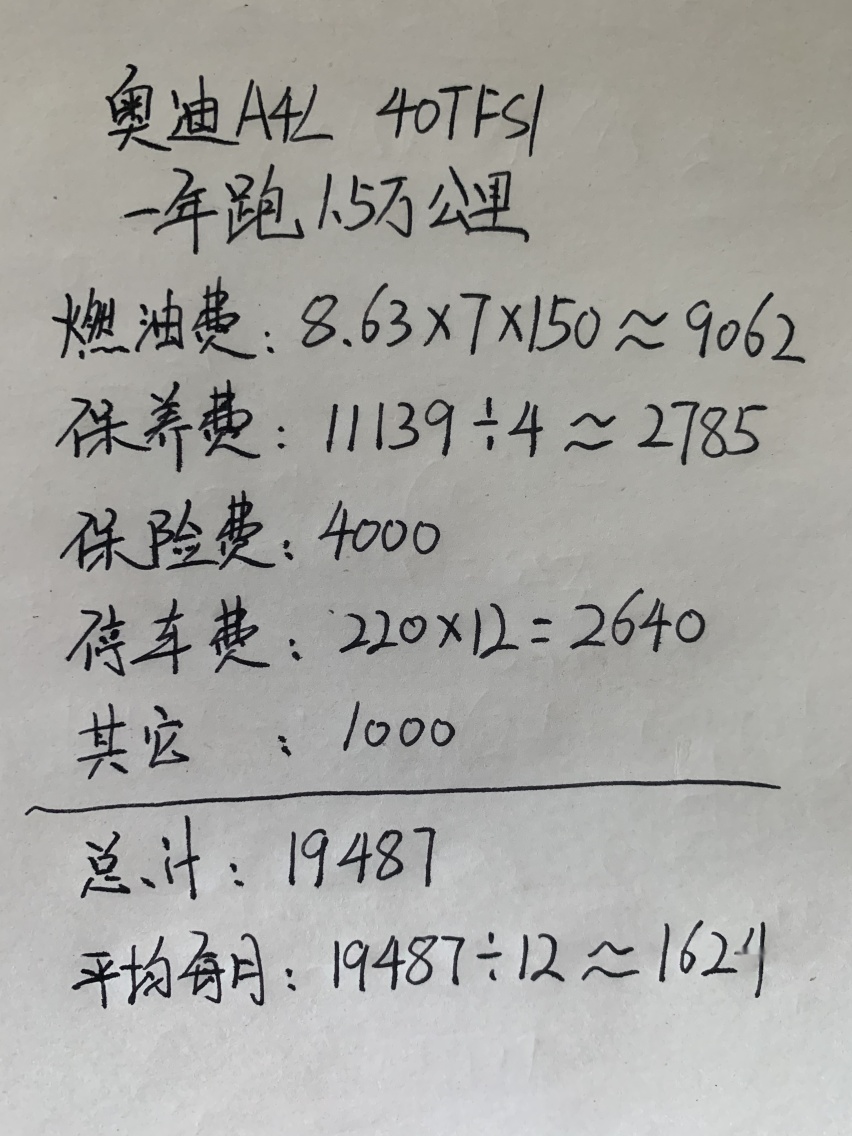 奥迪A4L 40TFSI
一年跑1.5万公里
燃油费：8.63×7×150≈9062
保养费：11139÷4≈2785
保险费：4000
停车费：220×12=2640
其它：1000
总计：19487
平均每月：19487÷12≈1624